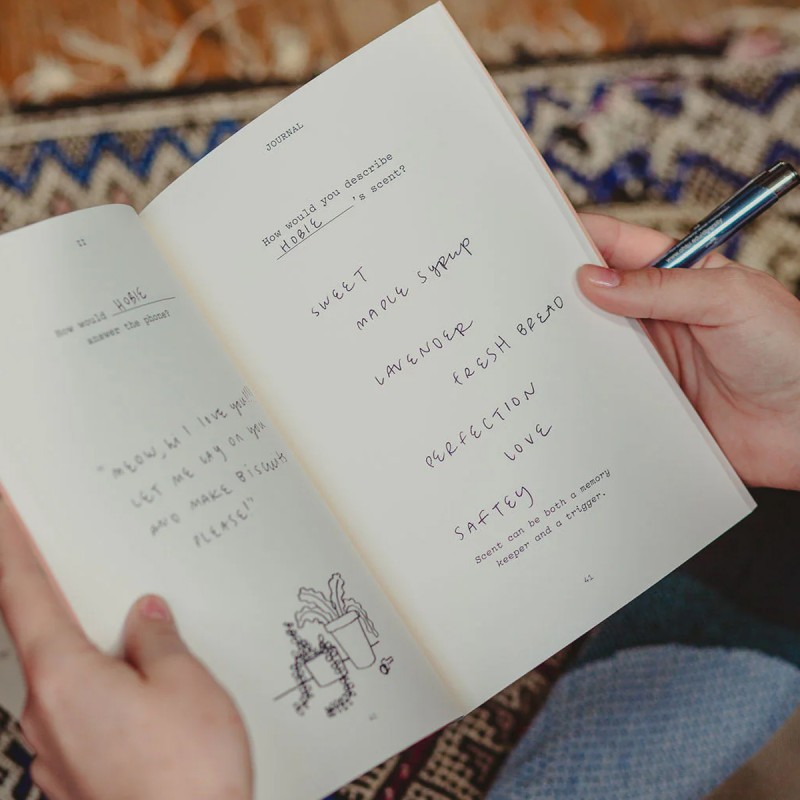 How would HOBIE
answer the phone?
"MEOW, hi I love you!!!
LET ME LAY ON you
AND MAKE BISCUITS
PLEASE!"
JOURNAL
How would you describe
HOBIE 's scent?
SWEET
MAPLE SYRUP
LAVENDER
FRESH BREAD
PERFECTION
LOVE
SAFTEY
Scent can be both a memory
keeper and a trigger.
41